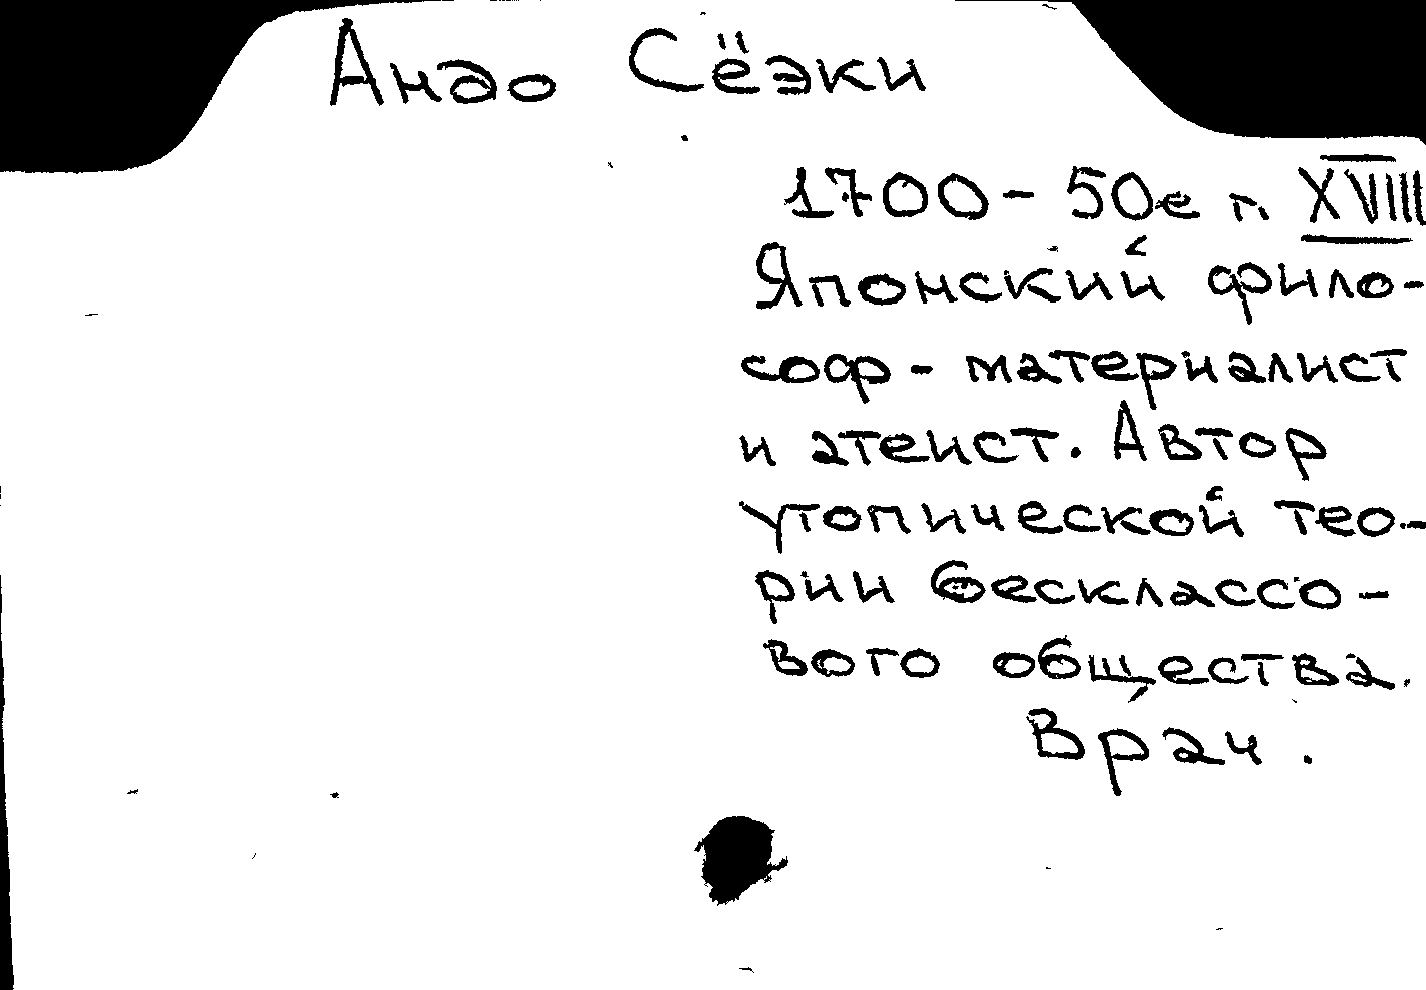 Андо Сёэки
1700 - 50е гг. XVIII
Японский фило-
соф - материалист
и атеист. Автор
утопической тео-
рии бесклассо-
вого общества.
Врач.